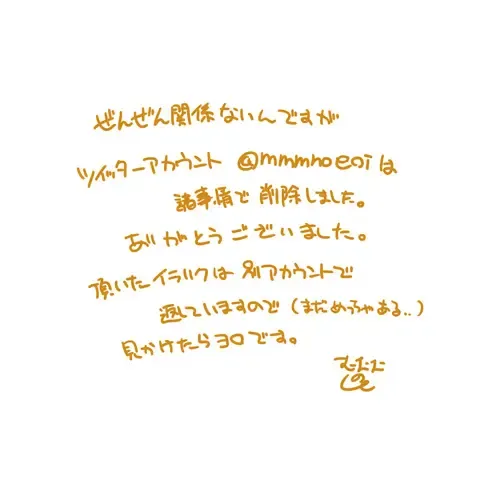 ぜんぜん関係ないんですが
ツイッターアカウント @mmmnoeoiは
諸事情で削除しました。
ありがとうございました。
頂いたイラリクは別アカウントで
返していますので(まだめっちゃある..)
見かけたらヨロです。